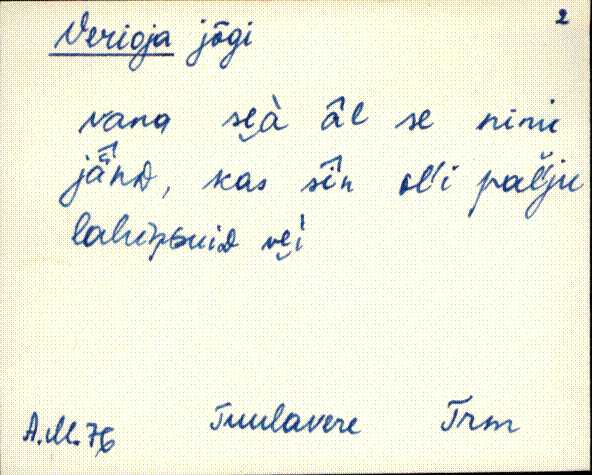 2
Verioja jõgi
vana se̮à âl se nimi
jä̂nD, kas sîn ol'i pal'ju
lahiɲguid ve̮i
A.M. 76 Tuulavere Trm